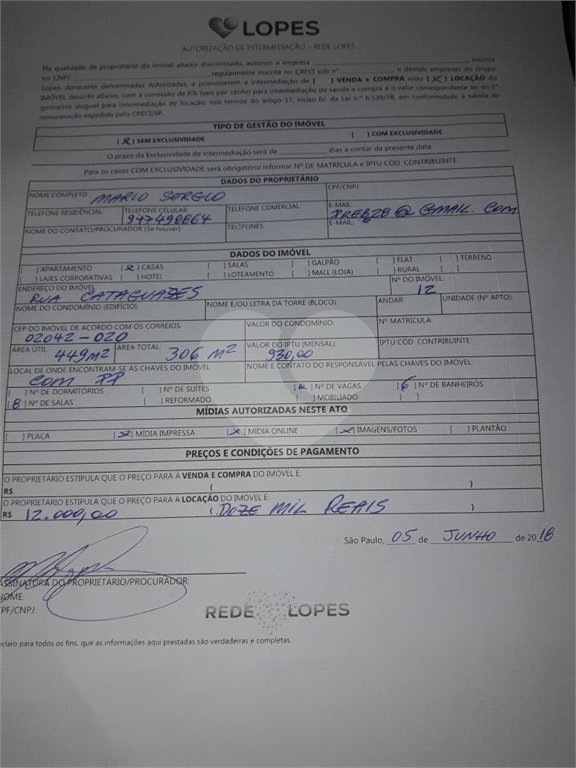 LOPES
AUTORIZAÇÃO DE INTERMEDIAÇÃO – REDE LOPES
Na qualidade de proprietário do imóvel abaixo discriminado, autorizo a empresa ______, inscrita
no CNPJ ______ regularmente inscrita no CRECI sob nº ______, e demais empresas do Grupo
Lopes, doravante denominadas Autorizadas, a promoverem a intermediação de ( ) VENDA e COMPRA e/ou ( X ) LOCAÇÃO do
IMÓVEL descrito abaixo, com a comissão de 6% (seis por cento) para intermediação de venda e compra e o valor correspondente ao do 1º
(primeiro) aluguel para intermediação de locação, nos termos do artigo 17, inciso IV, da Lei n.º 6.530/78, em conformidade à tabela de
remuneração expedida pelo CRECI/SP.
TIPO DE GESTÃO DO IMÓVEL
( X ) SEM EXCLUSIVIDADE ( ) COM EXCLUSIVIDADE
O prazo da Exclusividade de intermediação será de ______ dias a contar da presente data.
Para os casos COM EXCLUSIVIDADE será obrigatório informar Nº DE MATRÍCULA e IPTU CÓD. CONTRIBUINTE.
DADOS DO PROPRIETÁRIO
NOME COMPLETO: MARIO SERGIO CPF/CNPJ:
TELEFONE RESIDENCIAL: TELEFONE CELULAR: 947490664 TELEFONE COMERCIAL: E-MAIL: @GMAIL.COM
NOME DO CONTATO/PROCURADOR (Se houver): TELEFONES: E-MAIL:
DADOS DO IMÓVEL
( ) APARTAMENTO ( X ) CASAS ( ) SALAS ( ) GALPÃO ( ) FLAT ( ) TERRENO
( ) LAJES CORPORATIVAS ( ) HOTEL ( ) LOTEAMENTO ( ) MALL (LOJA) ( ) RURAL
ENDEREÇO DO IMÓVEL: RUA CATAGUAZES Nº DO IMÓVEL: 12
NOME DO CONDOMÍNIO (EDIFÍCIO): NOME E/OU LETRA DA TORRE (BLOCO): ANDAR: UNIDADE (Nº APTO):
CEP DO IMÓVEL DE ACORDO COM OS CORREIOS: 02042-020 VALOR DO CONDOMÍNIO: Nº MATRÍCULA:
ÁREA ÚTIL: 449m2 ÁREA TOTAL: 306 m2 VALOR DO IPTU (MENSAL): 930,00 IPTU CÓD. CONTRIBUINTE:
LOCAL DE ONDE ENCONTRAM-SE AS CHAVES DO IMÓVEL: COM PP NOME E CONTATO DO RESPONSÁVEL PELAS CHAVES DO IMÓVEL:
( ) Nº DE DORMITÓRIOS ( ) Nº DE SUÍTES Nº DE VAGAS ( 6 ) Nº DE BANHEIROS
( 8 ) Nº DE SALAS ( ) REFORMADO ( ) MOBILIADO
MÍDIAS AUTORIZADAS NESTE ATO
( ) PLACA ( X ) MÍDIA IMPRESSA ( X ) MÍDIA ONLINE ( X ) IMAGENS/FOTOS ( ) PLANTÃO
PREÇOS e CONDIÇÕES DE PAGAMENTO
O PROPRIETÁRIO ESTIPULA QUE O PREÇO PARA A VENDA E COMPRA DO IMÓVEL É
R$ ( )
O PROPRIETÁRIO ESTIPULA QUE O PREÇO PARA A LOCAÇÃO DO IMÓVEL É
R$ 12.000,00 ( DOZE MIL REAIS )
São Paulo, 05 de JUNHO de 2018
ASSINATURA DO PROPRIETÁRIO/PROCURADOR
NOME:
CPF/CNPJ:
REDE LOPES
Declaro para todos os fins, que as informações aqui prestadas são verdadeiras e completas.